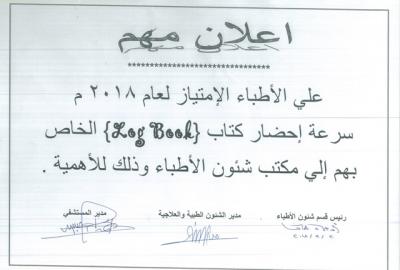 اعلان مهم
********************************
علي الأطباء الإمتياز لعام ٢٠١٨ م
سرعة إحضار كتاب {Log Book} الخاص
بهم إلي مكتب شئون الأطباء وذلك للأهمية .
رئيس قسم شئون الأطباء
مدير الشئون الطبية والعلاجية
مدير المستشفي